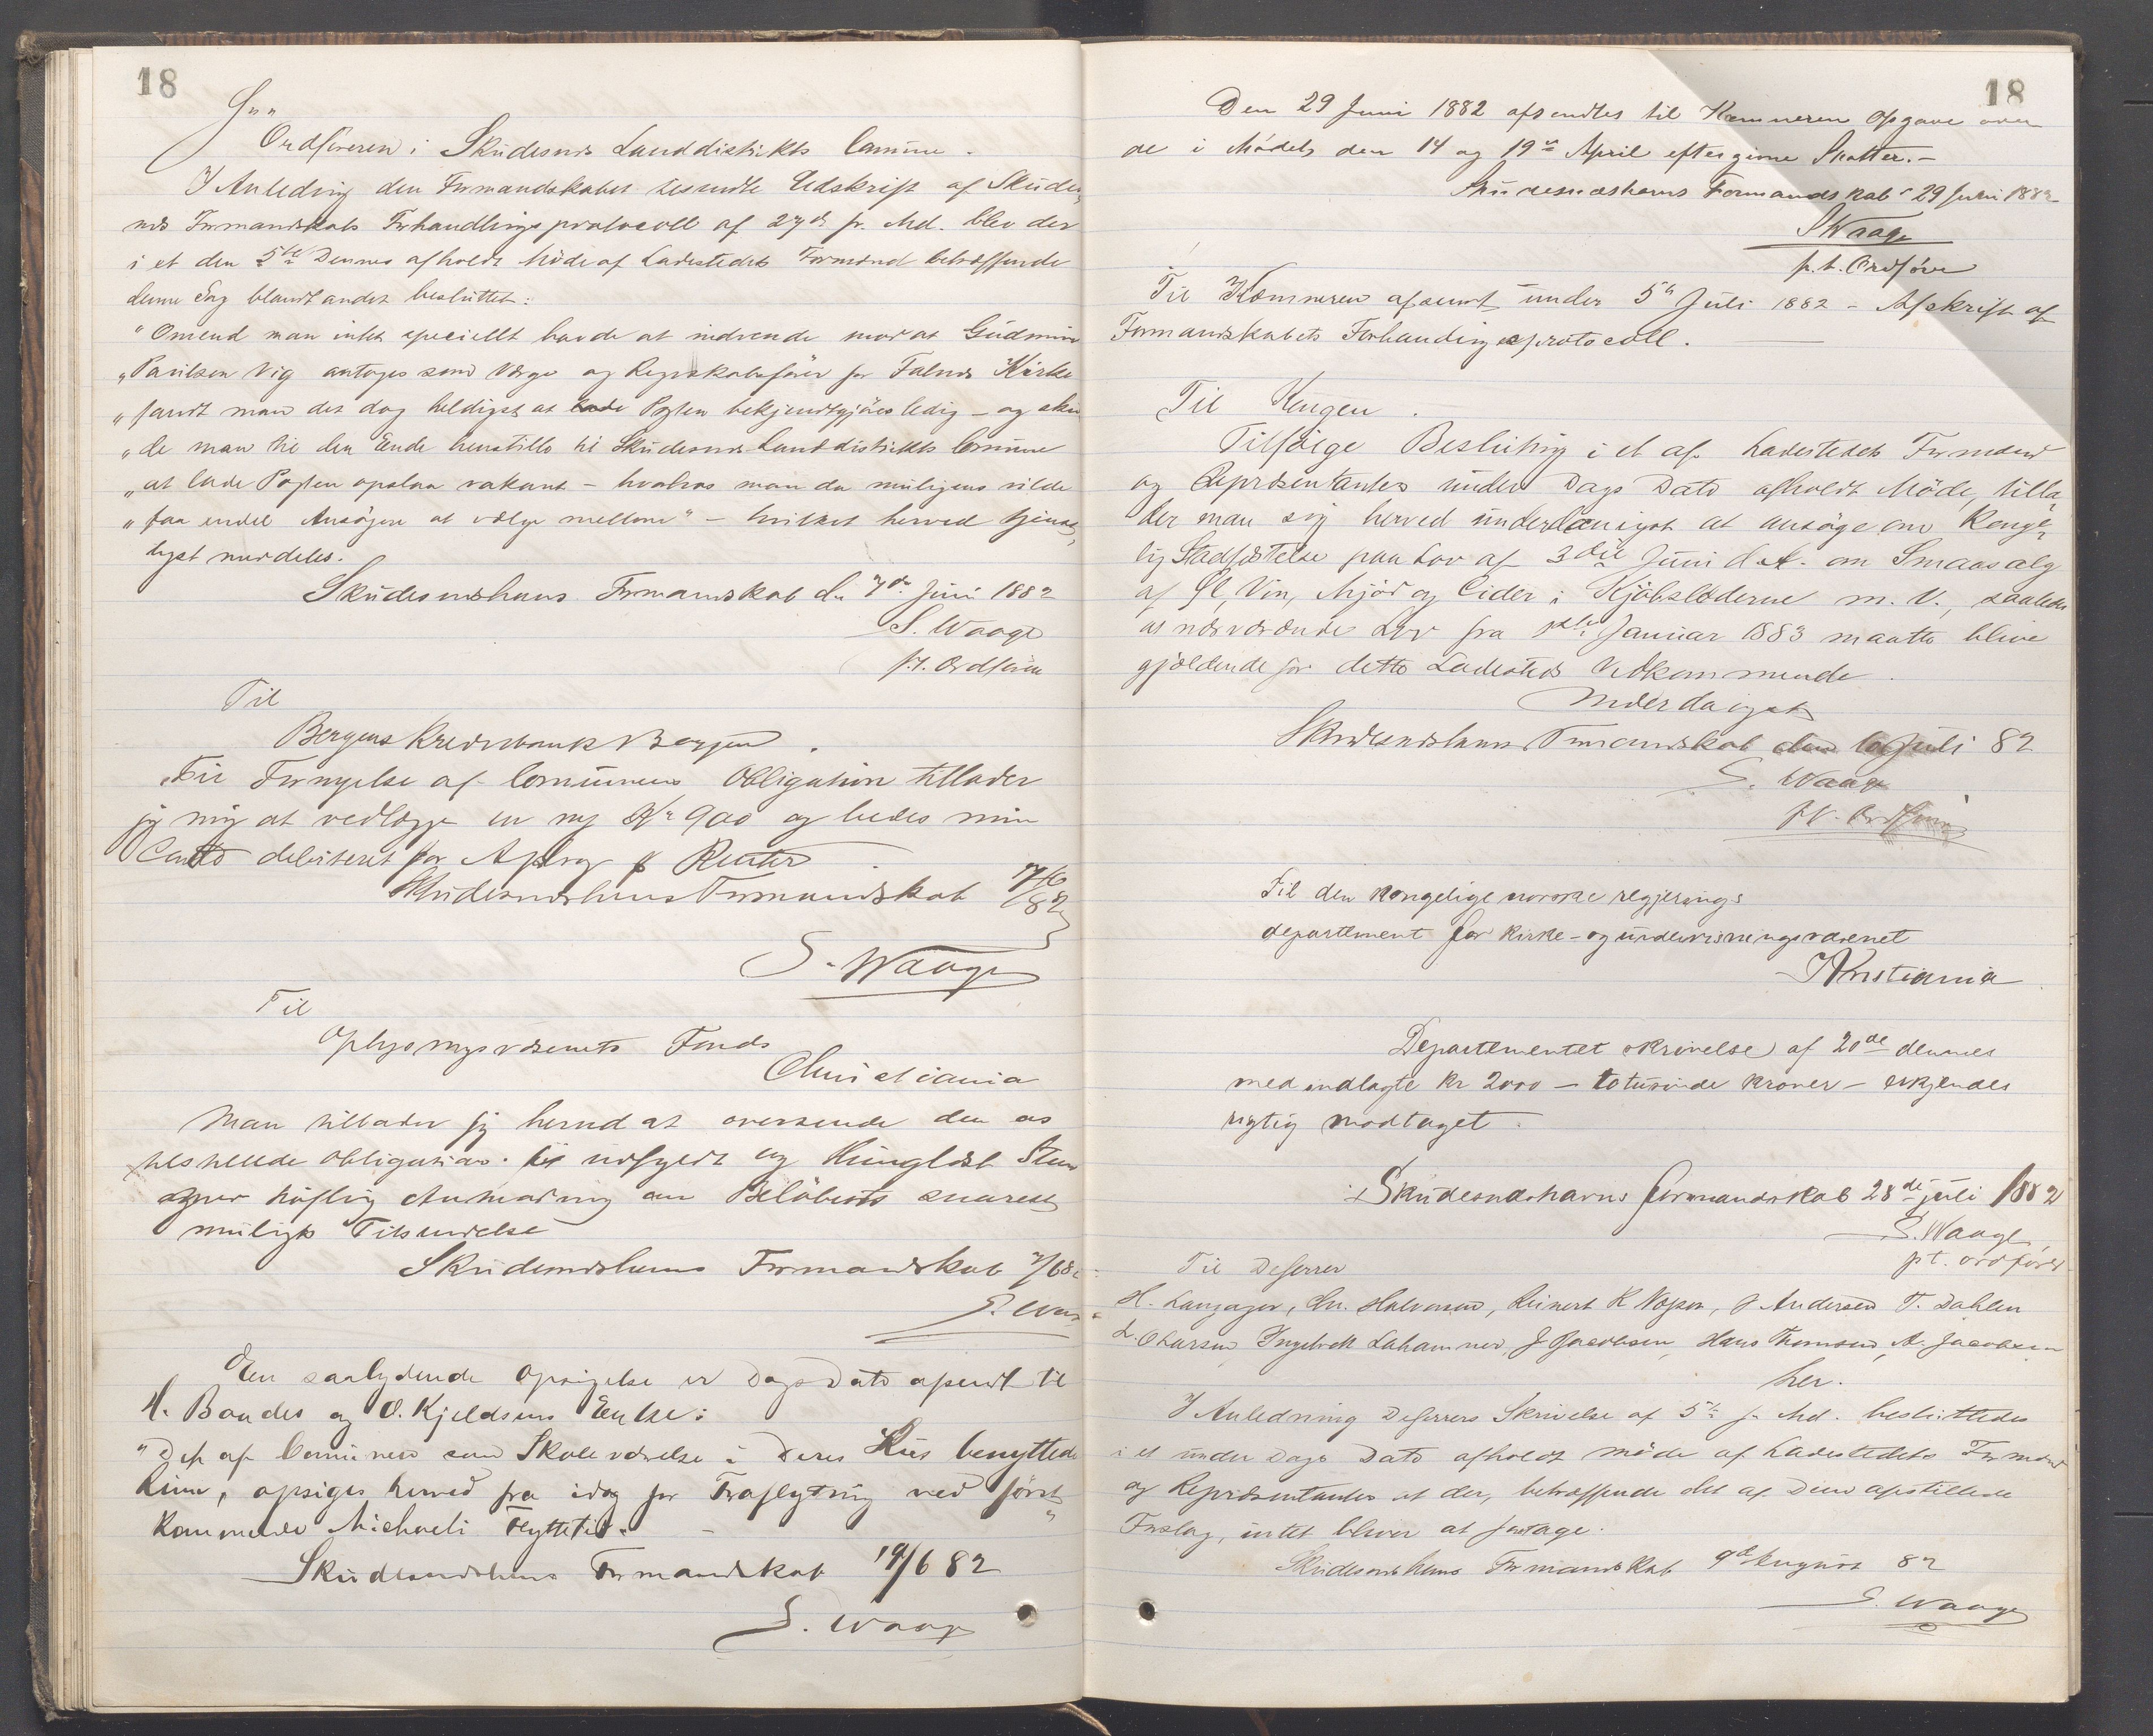 18
Hrr
Ordföreren i Skudesnæs Landdistrikts Comune.
I Anledning den Formandskabet tilsendte Udskrift af Skudes
næs Formandskabs Forhandlingsprotocoll af 27de f. Md. blev der
i et den 5te Dennes afholdt Möde af Ladestedets Formænd betræffende
denne Sag blandt andet besluttet:
"Omend man intet specielt havde at indvende mod at Gudmun
"Paulsen Vig antages som Værge og Regnskabsförer for Falnæs Kirke
"fandt man det dog heldigst at lade Posten bekjendtgjöres ledig – og skul
"de man til den Ende henstille til Skudesnæs Landdistrikts Comune
"at lade Posten opslaa vakant – hvorhos man da muligens vilde
"faa endel Ansögere at vælge mellem" – hvilket herved tjenst
ligst meddeles.
Skudesneshavns Formandskab den 7de Juni 1882
S. Waage
p.t. Ordförer
Til
Bergens Kreditbank Bergen.
Til Fornyelse af Comunens Obligation tillader
jeg mig at vedlægge en ny Kr 900 og bedes min
Conto debiteret for Afdrag & Renter
Skudesneshavns Formandskab 7/6 82
S. Waage
Til
Oplysningsvæsenets Fond
Christiania
Man tillader sig herved at oversende den os
tilstillede Obligation udfyldt og thinglæst Stem
höflig Anmodning om Belöbets snarest
muligts Tilsendelse
Skudesneshavns Formandskab 7/6 82
S. Waa
En saalydende Opsigelse er Dags Dato afsendt til
H. Baades og O. Kjeldsens Enke:
"Det af Comunen som Skoleværelse i Deres Huus benyttede
Rum, opsiges herved fra idag for Fraflytning ved först
kommende Michaeli Flyttetid."
Skudesneshavns Formandskab 19/6 82
S. Waage
18
Den 29 Juni 1882 afsendtes til Kæmneren Opgave over
de i Mödet den 14 og 19de April eftergivne Skatter.–
Skudesnæshavns Formandskab 29 Juni 1882
S Waage
p.t. Ordförer
Til Kæmneren afsendt under 5te Juli 1882 – Afskrift af
Formandskabets Forhandlingsprotocoll.
Til Kongen.
Tilfölge Beslutning i et af Ladestedets Formænd
og Repræsentanter under Dags Dato afholdt Möde, tilla
der man sig herved underdanigst at ansöge om Konge
lig Stadfæstelse paa Lov af 3die Juni d.A. om Smaasalg
af Öl, Vin, Mjöd og Cider i Kjöbstæderne m. V., saaledes
at nærværende Lov fra 1ste Januar 1883 maatte blive
gjældende for dette Ladesteds Vedkommende.
Underdanigst
Skudesneshavns Formandskab den 10 Juli 82
S. Waage
p.t. Ordförer
Til den kongelige norske regjerings
departement for kirke- og undervisningsvæsenet
Kristiania
Departementet skrivelse af 20de dennes
med indlagte kr 2000 – totusinde kroner – erkjendes
rigtig modtaget.
Skudesnæshavns formandskab 28de juli 1882
S. Waage
pt. ordförer
Til DeHerrer
H. Langager, Chr. Halvorsen, Reinert K Nessen, J Andersen T. Dahlen
L. O Larsen Ingebret Lahammer, J Jacobsen, Hans Thomsen, A. Jacobsen
her.
I Anledning DeHerrers Skrivelse af 5te f. Md. besluttedes
i et under Dags Dato afholdt möde af Ladestedets Formænd
og Repræsentanter at der, betræffende det af Dem opstillede
Forslag, intet bliver at foretage.
Skudesneshavns Formandskab 9de August 82
S. Waage